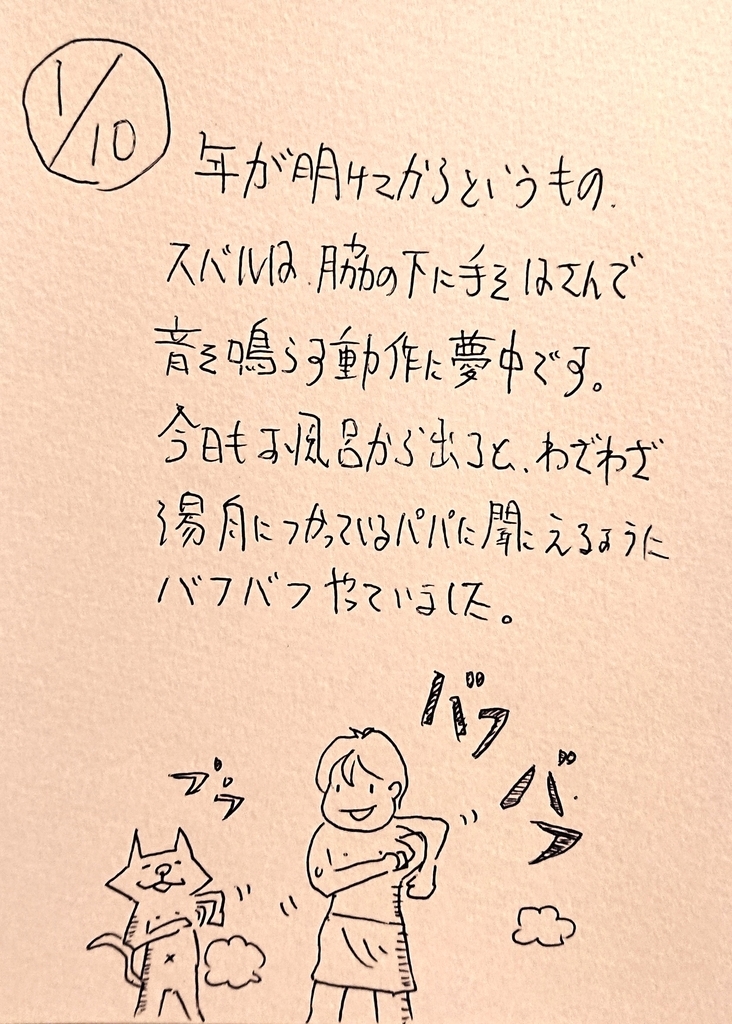 1/10
年が明けてからというもの、
スバルは、脇の下に手をはさんで
音を鳴らす動作に夢中です。
今日もお風呂から出ると、わざわざ
湯舟につかっているパパに聞こえるように
バフバフやっていました。
バフ
バフ
ブフ